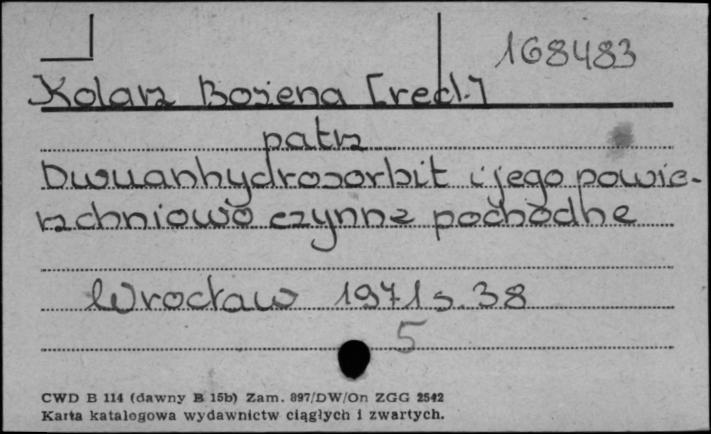 168483
Kolarz Bożena [red.]
patrz
Dwuanhydrosorbit i jego powie-
rzchniowo czynne pochodne
Wrocław 1971 s. 38
5
CWD B 114 (dawny B 15b) Zam. 897/DW/On ZGG 2542
Karta katalogowa wydawnictw ciągłych i zwartych.